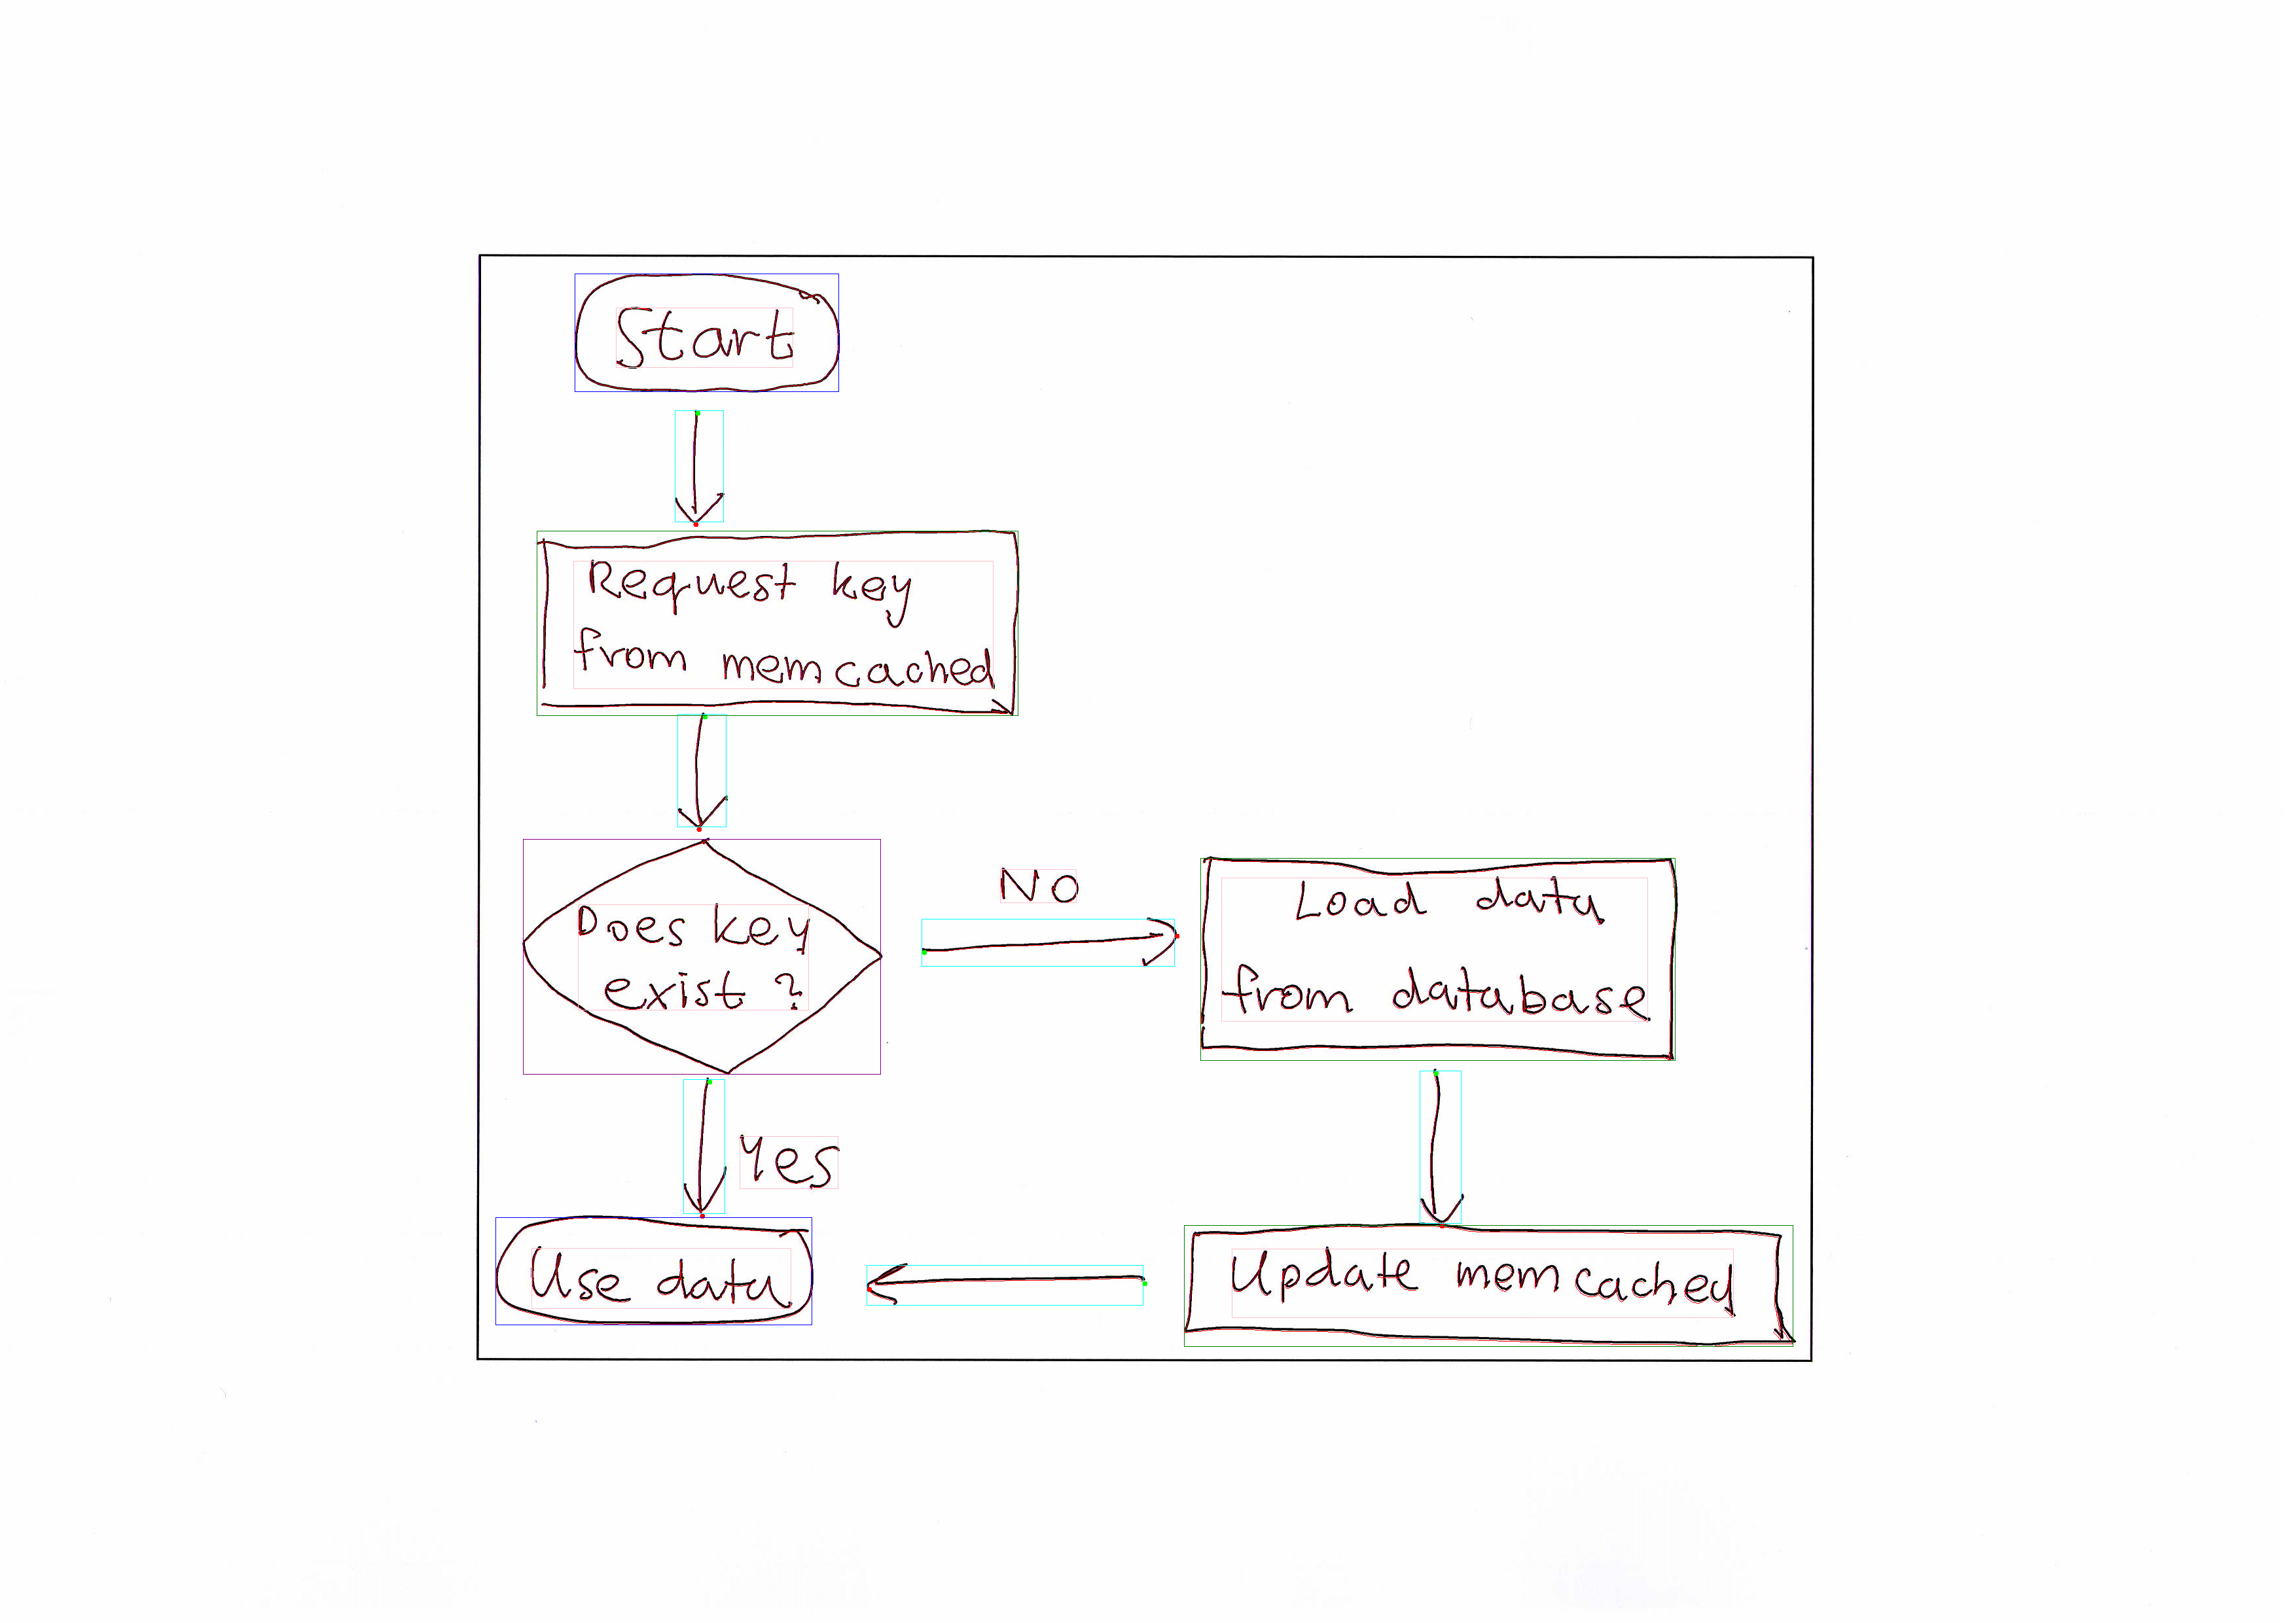 Start
Request key
from memcached
Does key
exist ?
NO
Load data
from database
Yes
Use data
Update memcached